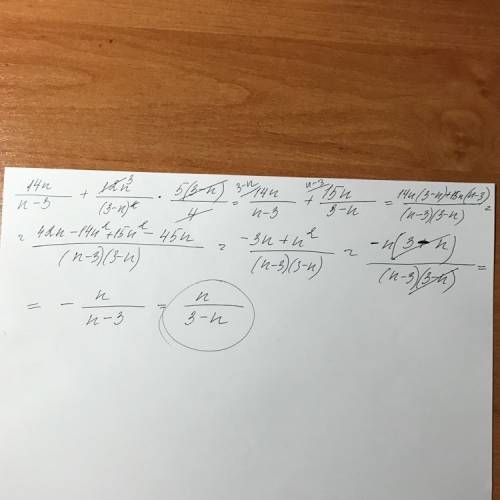 14n/(n-3) + 12n³/(3-n)² · 5(3-n)/4 = 3-n/14n/(n-3) + n-3/15n/(3-n) = (14n(3-n)+15n(n-3))/((n-3)(3-n)) =
= (42n-14n²+15n²-45n)/((n-3)(3-n)) = (-3n+n²)/((n-3)(3-n)) = -n(3-n)/((n-3)(3-n)) =
= - n/(n-3) = n/(3-n)